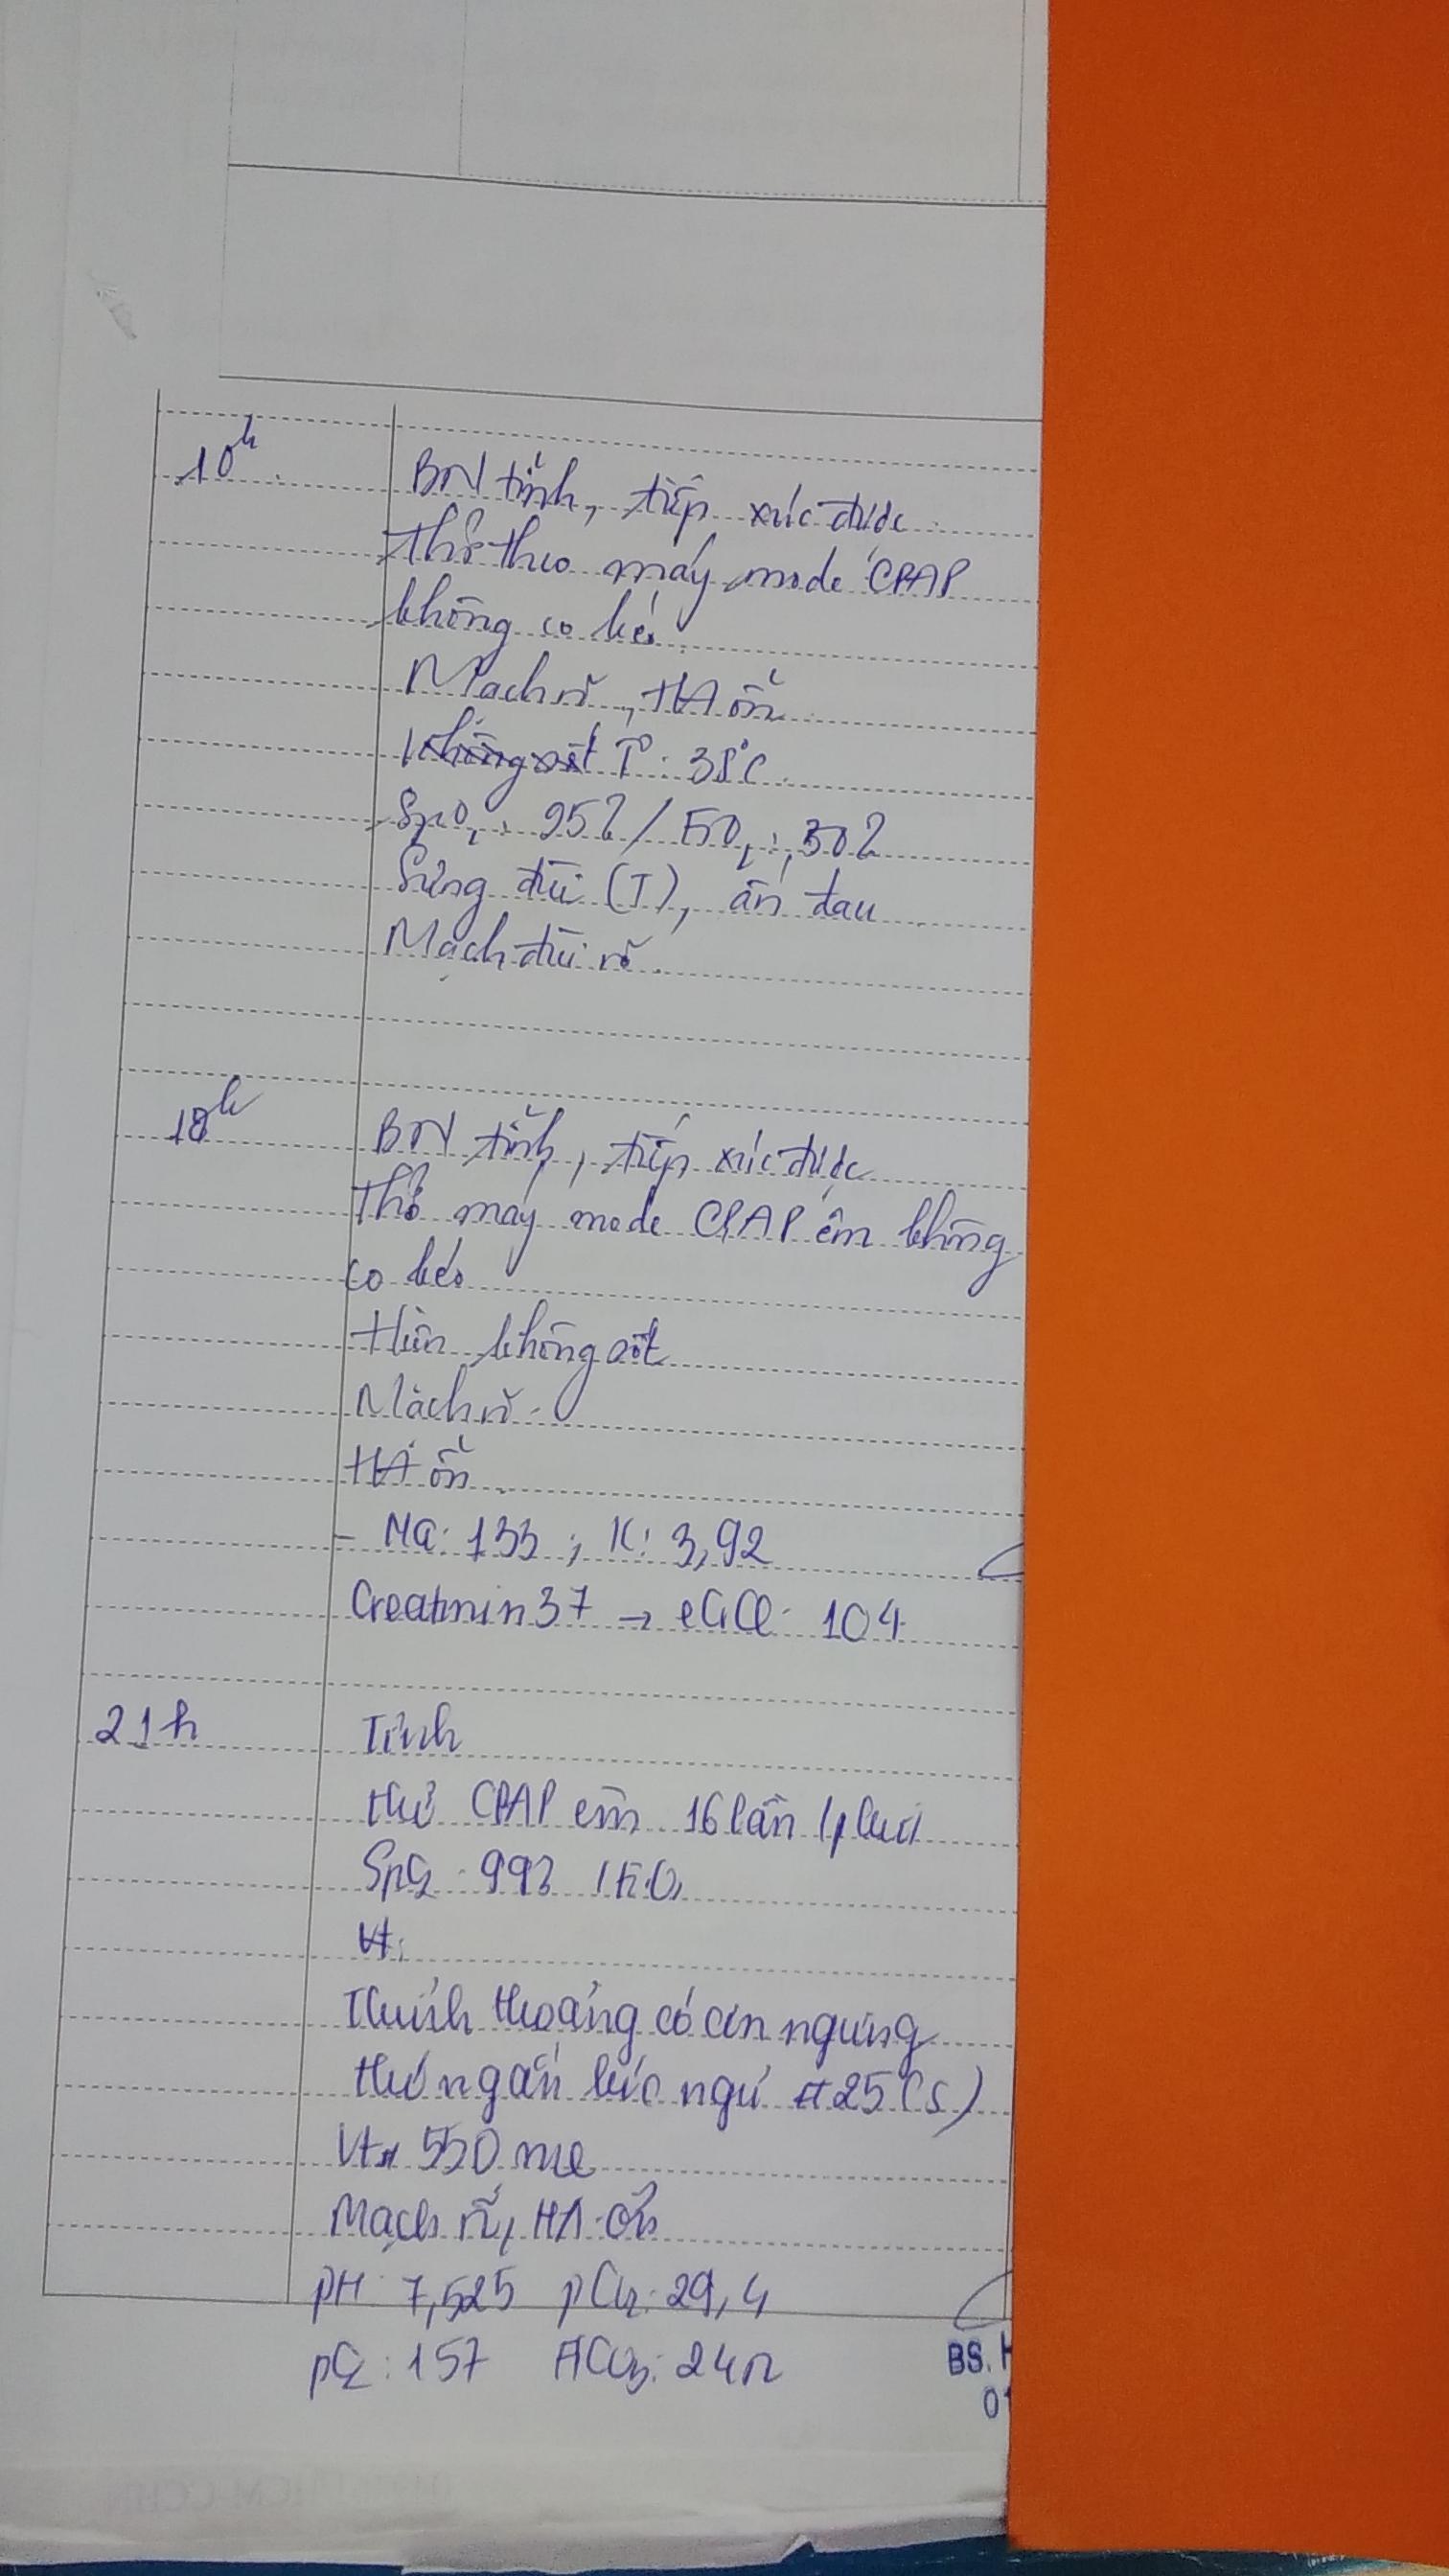 10h
BN tỉnh, tiếp xúc được
Thở theo máy mode CPAP
không co kéo
Mạch rõ, HA ổn
T°: 38°C
SpO2: 95% / FiO2: 30%
Sưng đùi (T), ấn đau
Mạch đùi rõ.
18h
BN tỉnh, tiếp xúc được
Thở máy mode CPAP êm không
co kéo
Hiện không sốt
Mạch rõ
HA ổn
- Na: 133 ; K: 3,92
Creatinin 37 →
104
21h
Tỉnh
thở CPAP êm 16 lần / phút
SpO2: 99% / FiO2
Vt:
Thỉnh thoảng có cơn ngưng
thở ngắn lúc ngủ # 25 (s)
Vt # 550 ml
Mạch rõ, HA ổn
pH: 7,525 pCO2: 29,4
pO2: 157 HCO3:
BS. H